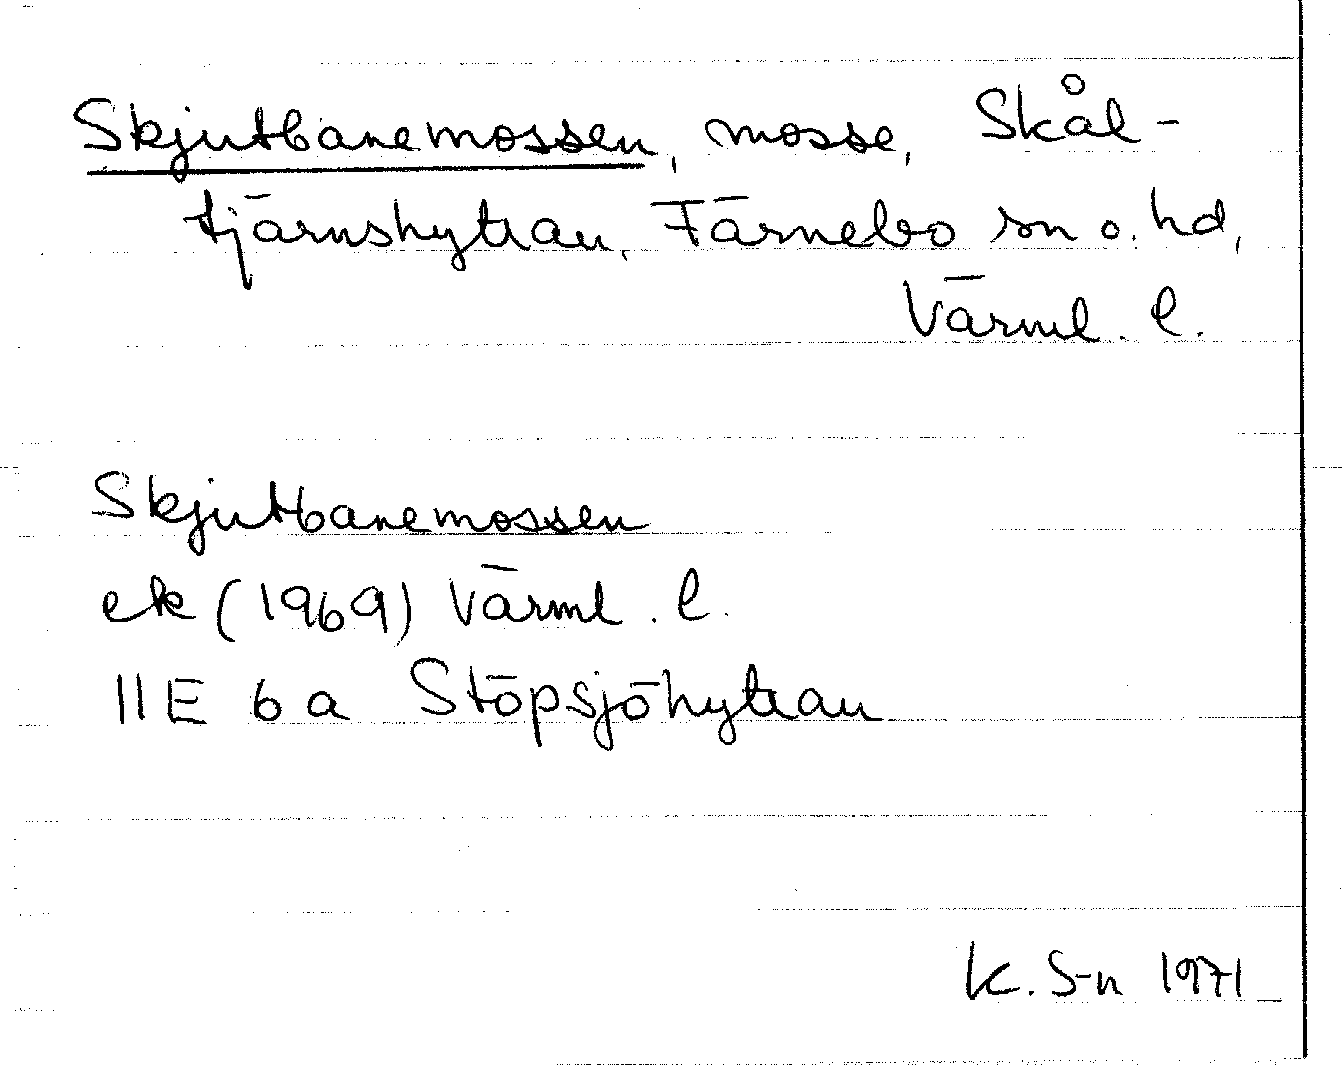 Skjutbanemossen, mosse, Skål-
tjärnshyttan, Färnebo sn o. hd,
Värml. l.
Skjutbanemossen
ek (1969) Värml. l.
11E 6a Stöpsjöhyttan
K. S-n 1971